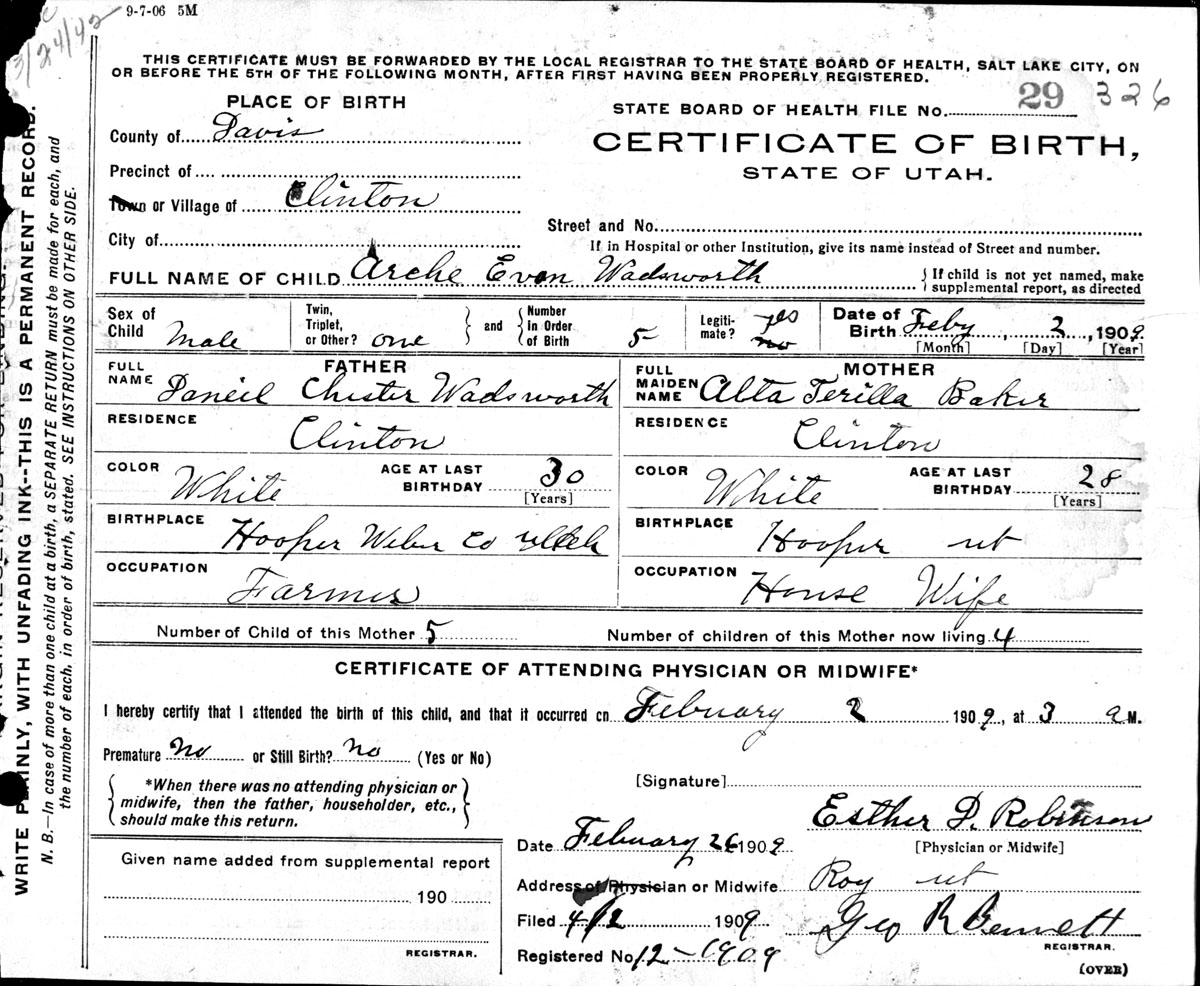 3/24/42
9-7-06 5M
THIS CERTIFICATE MUST BE FORWARDED BY THE LOCAL REGISTRAR TO THE STATE BOARD OF HEALTH, SALT LAKE CITY, ON
OR BEFORE THE 5TH OF THE FOLLOWING MONTH, AFTER FIRST HAVING BEEN PROPERLY REGISTERED.
PLACE OF BIRTH
STATE BOARD OF HEALTH FILE No. 29 326
County of Davis
CERTIFICATE OF BIRTH,
STATE OF UTAH.
Precinct of
Town or Village of Clinton
Street and No.
City of
If in Hospital or other Institution, give its name instead of Street and number.
FULL NAME OF CHILD Arche Evon Wadsworth { If child is not yet named, make supplemental report, as directed
Sex of Child Male
Twin, Triplet, or Other? one } and { Number In Order of Birth 5
Legitimate? yes no
Date of Birth Feby 2, 1909.
[Month] [Day] [Year]
FATHER
FULL NAME Daneil Chester Wadsworth
RESIDENCE Clinton
COLOR White AGE AT LAST BIRTHDAY 30 [Years]
BIRTHPLACE Hooper Weber Co Utah
OCCUPATION Farmer
MOTHER
FULL MAIDEN NAME Alta Terilla Baker
RESIDENCE Clinton
COLOR White AGE AT LAST BIRTHDAY 28 [Years]
BIRTHPLACE Hooper ut
OCCUPATION House Wife
Number of Child of this Mother 5 Number of children of this Mother now living 4
CERTIFICATE OF ATTENDING PHYSICIAN OR MIDWIFE*
I hereby certify that I attended the birth of this child, and that it occurred on February 2 1909, at 3 a M.
Premature No or Still Birth? No (Yes or No)
{ *When there was no attending physician or
midwife, then the father, householder, etc.,
should make this return. }
[Signature]
Esther D. Robinson
[Physician or Midwife]
Date February 26 1909
Address of Physician or Midwife Roy ut
Filed 4/2 1909 Geo R Bennett
REGISTRAR.
Registered No 12-1909
(OVER)
Given name added from supplemental report
190
REGISTRAR.
WRITE PLAINLY, WITH UNFADING INK--THIS IS A PERMANENT RECORD.
N. B.—In case of more than one child at a birth, a SEPARATE RETURN must be made for each, and
the number of each, in order of birth, stated. SEE INSTRUCTIONS ON OTHER SIDE.